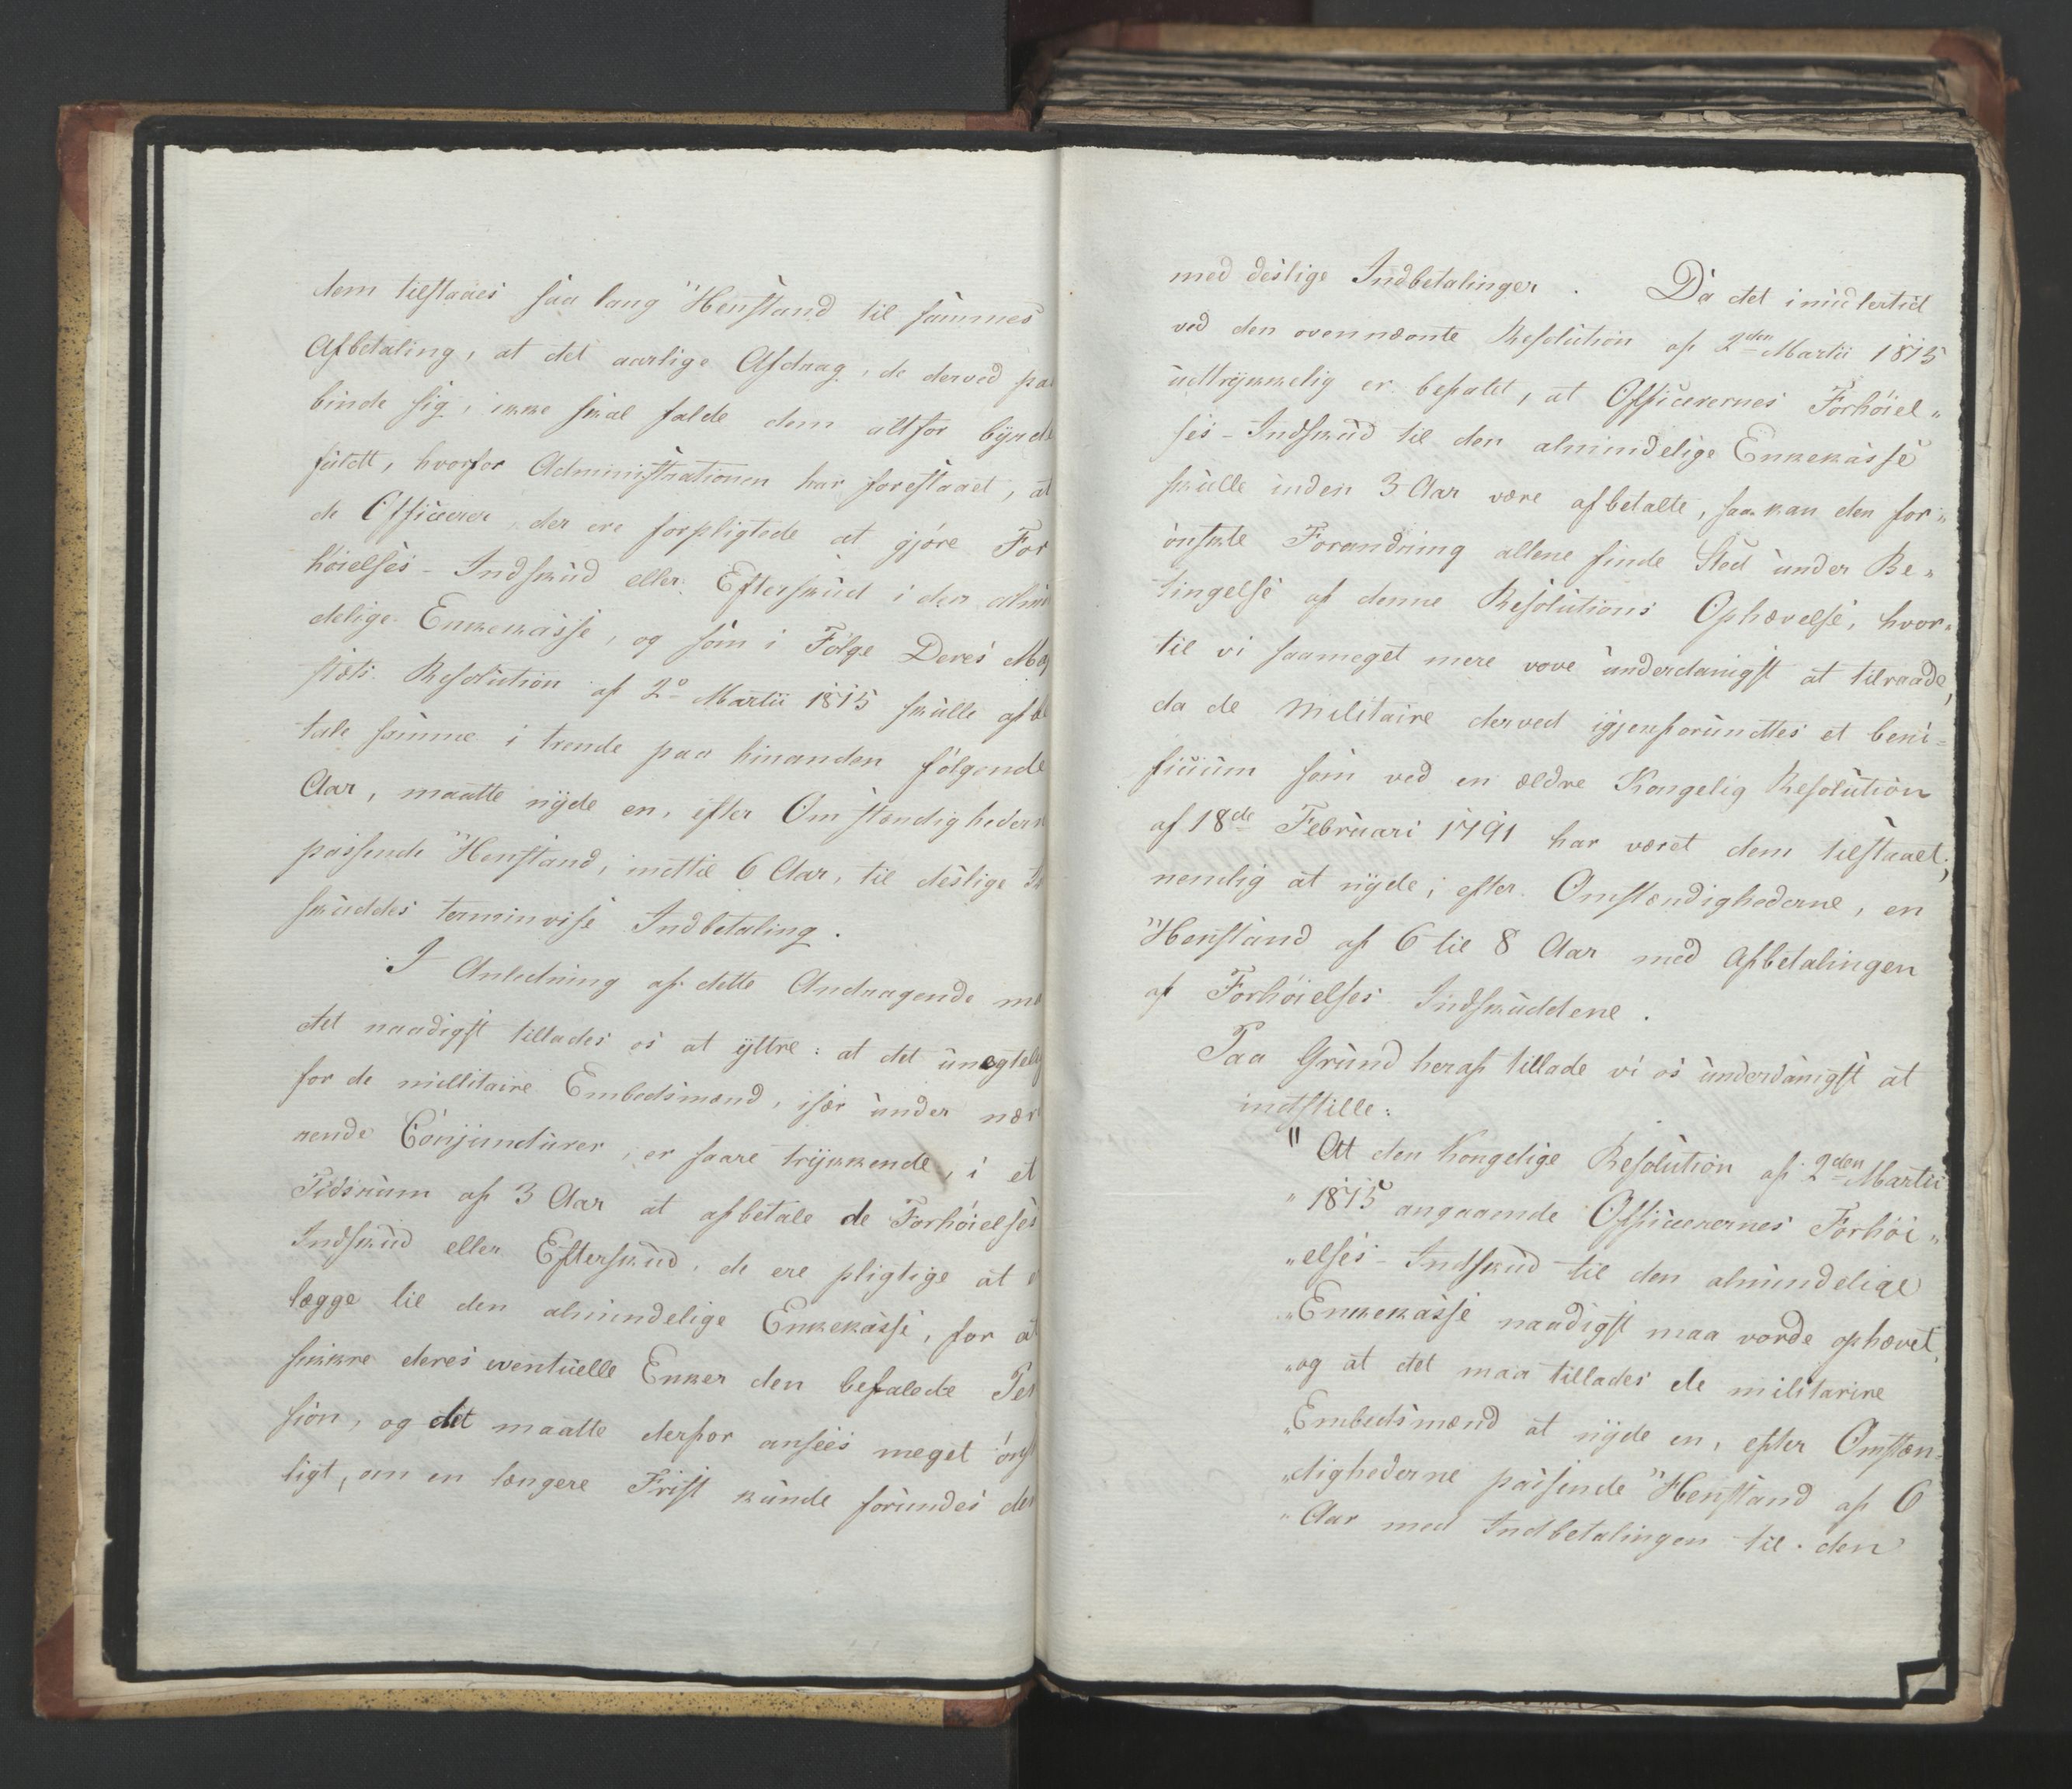 dem tilstaaes saa lang Henstand til sammes
Afbetaling, at det aarlige Afdrag, de derved paa
binde sig, ikke skal falde dem altfor byrde
fuldt, hvorfor Administrationen har foreslaaet, at
de Officerer der ere forpligtede at gjøre For
høielses-Indskud eller Efterskud i den almin
delige Enkekasse, og som i Følge Deres Maj
stæts Resolution af 2º Martii 1815 skulle afbe
tale samme i trende paa hinanden følgende
Aar, maatte nyde en, efter Omstændighedern
passende Henstand, indtil 6 Aar, til deslige In
skuddes terminvise Indbetaling.
I Anledning af dette Andragende maa
det naadigst tillades os at yttre: at det unegtelig
for de militaire Embedsmænd, især under nær
rende Conjuncturer, er saare trykkende, i et
Tidsrum af 3 Aar at afbetale de Forhøielses
Indskud eller Efterskud, de ere pligtige at e
lægge til den almindelige Enkekasse, for at
sikkre deres eventuelle Enker den befalede Pen
sion, og det maatte derfor ansees meget ønsk
ligt, om en længere Frist kunde forundes dem
med deslige Indbetalinger. Da det imidlertid
ved den ovennævnte Resolution af 2den Martii 1815
udtrykkelig er befalet, at Officerernes Forhøiel„
ses-Indskud til den almindelige Enkekasse
skulle inden 3 Aar være afbetalte, saa kan den for„
ønskte Forandring allene finde Sted under Be„
tingelse af denne Resolutions Ophævelse, hvor„
til vi saameget mere vove underdanigst at tilraade,
da de Militaire derved igjenforundtes et beni-
ficium som ved en ældre Kongelig Resolution
af 18de Februari 1791 har været dem tilstaaet;
nemlig at nyde, efter Omstændighederne, en
Henstand af 6 til 8 Aar med Afbetalingen
af Forhøielses Indskuddene.
Paa Grund heraf tillade vi os underdanigst at
indstille:
" At den Kongelige Resolution af 2den Martii
„ 1815 angaaende Officerernes Forhøi„
„elses-Indskud til den almindelige
„Enkekasse naadigst maa vorde ophævet,
„og at det maa tillades de militarire
„Embedsmænd at nyde en, efter Omstæn
„dighederne passende Henstand af 6
„Aar med Indbetalingen til den